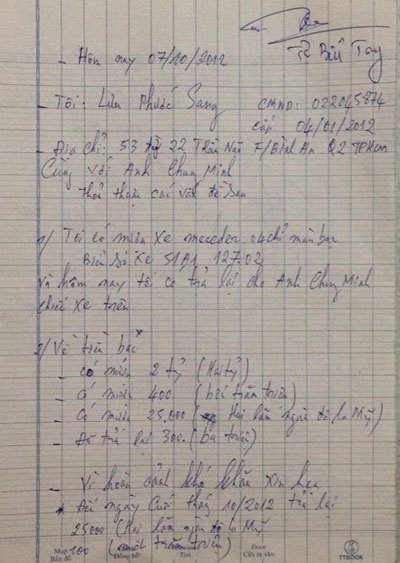 TL Bửu Tay
- Hôm nay 07/10/2012
- Tôi: Lưu Phước Sang CMND: 022045874
cấp 04/01/2012
- Địa chỉ: 53 22 Trần Não F/Bình An Q2 TPHCM
Cùng với Anh Chung Minh
thỏa thuận các vấn đề sau
1/ Tôi có mượn xe mecedes 04 chỗ màu bạc
Biển Số Xe 51A1 127.02
và hôm nay tôi có trả lại cho Anh Chung Minh
chiếc xe trên
2/ Về tiền bạc
- Có mượn 2 tỷ (Hai tỷ)
- Có mượn 400 (bốn trăm triệu)
- Có mượn 25.000 Hai lăm ngàn đô la Mỹ)
- Đã trả lại 300. (ba triệu)
- Vì hoàn cảnh khó khăn xin hẹn
* Đến ngày Cuối tháng 10/2012 trả lại
25000 (Hai lăm ngàn đô la Mỹ
100 (một trăm triệu)
Map
Bản đồ
Door
Cửa ra vào
YTBOOK